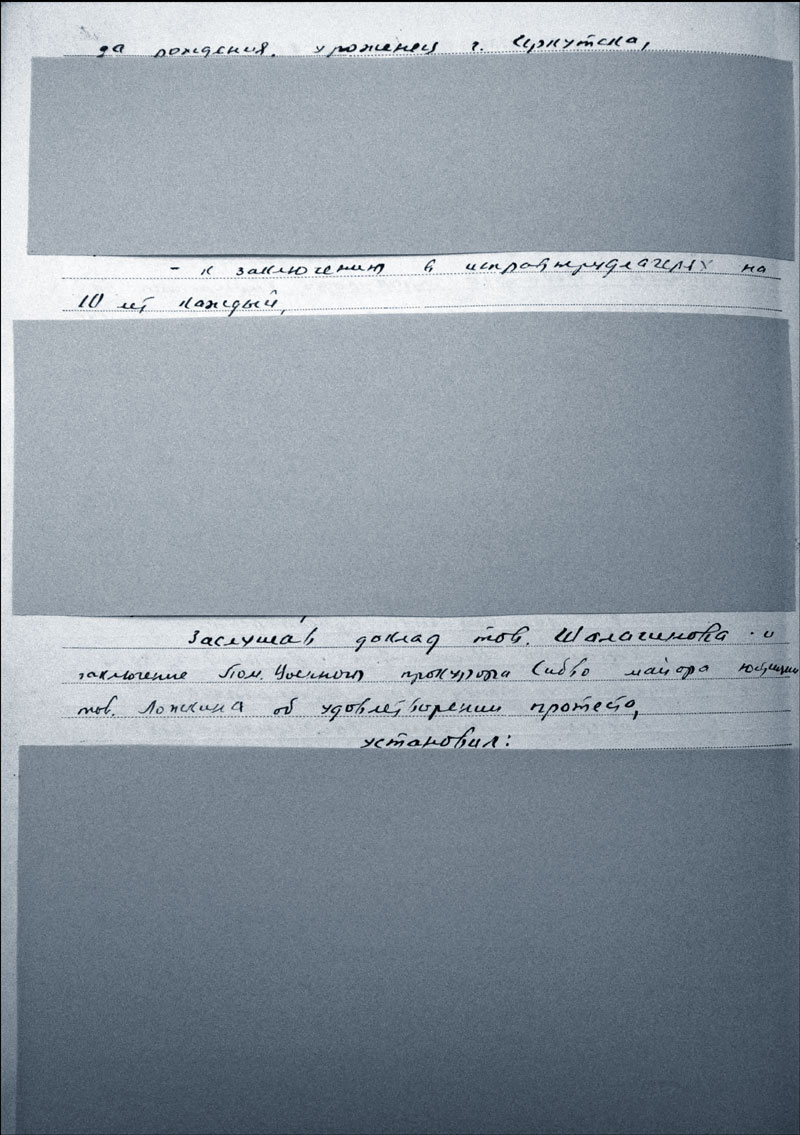 да рождения, уроженец г. Иркутска,
- к заключению в исправтрудлагерях на
10 лет каждый,
Заслушав доклад тов. Шалагинова и
заключение Пом. Военного прокурора СибВО майора юстиции
тов. Ложкина об удовлетворении протеста,
установил: